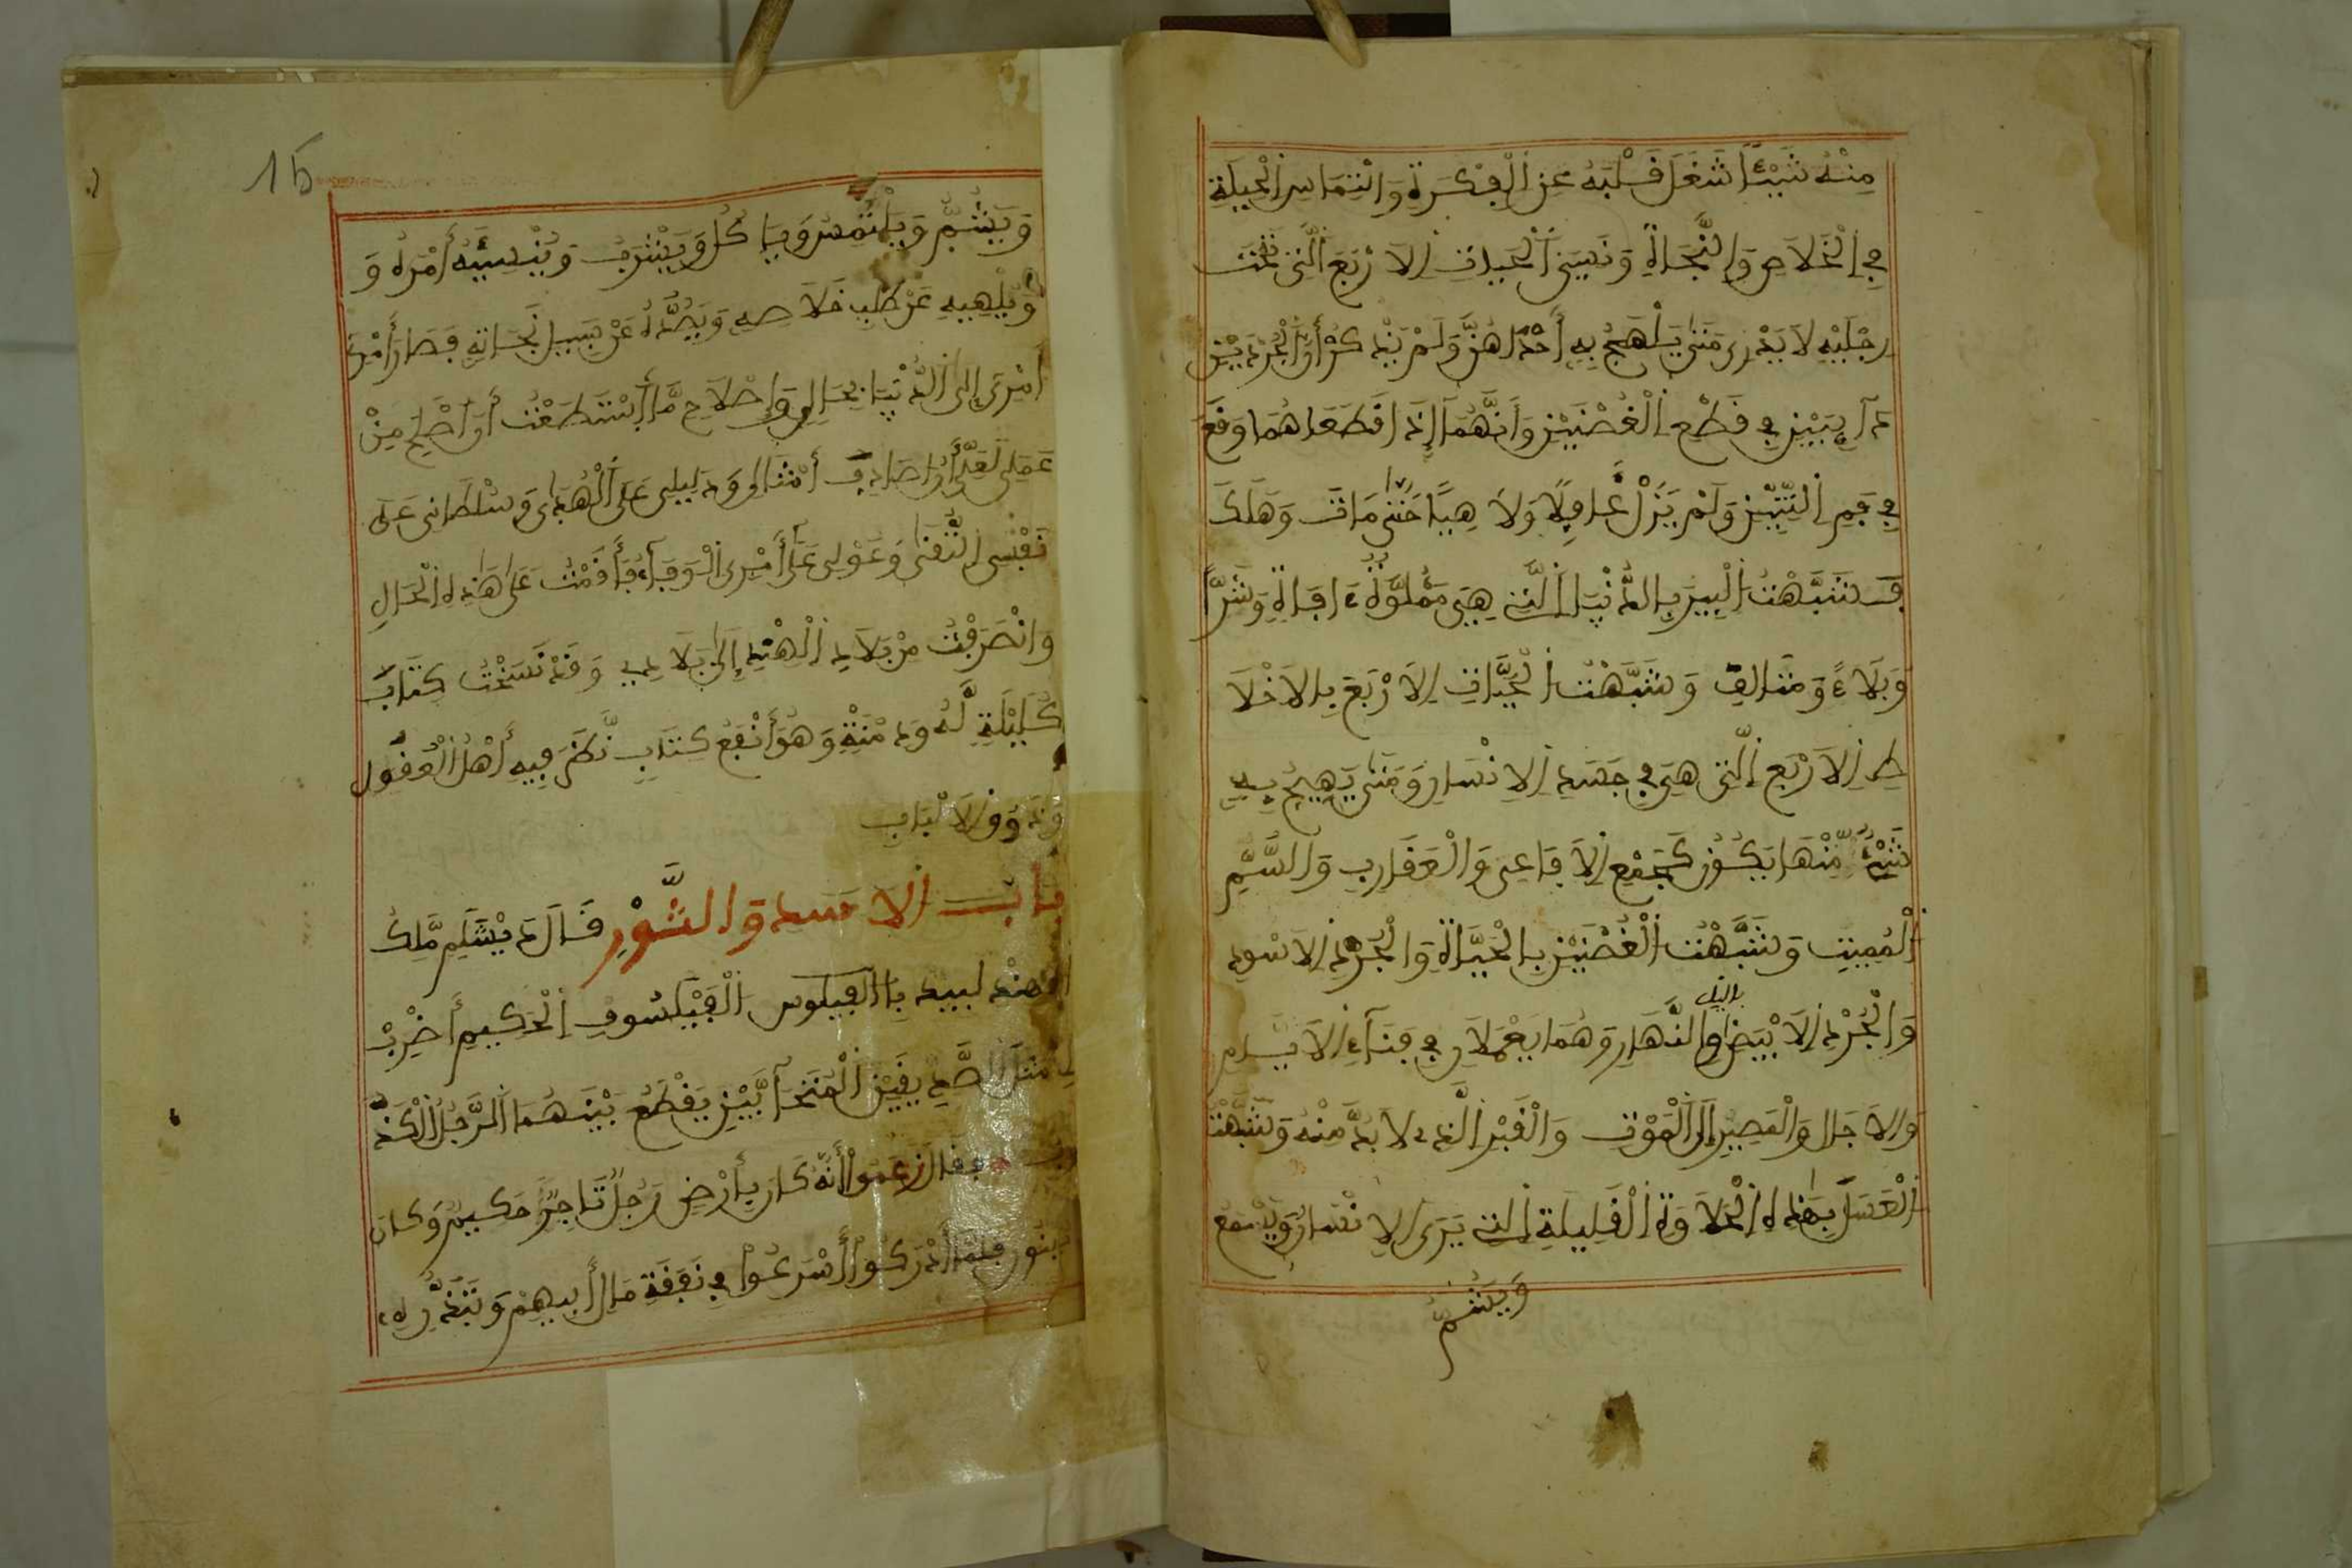 مِنْهُ شَيْئًا شَغَلَ قَلْبَهُ عَنِ الْفِكْرَةِ وَالْتِمَاسِ الْحِيلَةِ
فِي الْخَلَاصِ وَالنَّجَاةِ وَنَسِيَ الْحَيَّاتِ الْأَرْبَعَ الَّتِي تَحْتَ
رِجْلَيْهِ لَا يَدْرِي مَتَى يَلْهَجُ بِهِ أَحْدَاهُنَّ وَلَمْ يَذْكُرْ أَنَّ الْجُرَذَيْنِ
دَآيِبَيْنِ فِي قَطْعِ الْغُصْنَيْنِ وَأَنَّهُمَا إِذَا قَطَعَاهُمَا وَقَعَ
فِي فَمِ التِّنِّينِ وَلَمْ يَزَلْ غَافِلًا وَلَاهِيًا حَتَّى مَاتَ وَهَلَكَ
فَشَبَّهْتُ الْبِيرَ بِالدُّنْيَا الَّتِي هِيَ مَمْلُوَّةٌ ءَافَاةٍ وَشَرًّا
وَبَلَاءً وَمَتَالِفَ وَشَبَّهْتُ الْحَيَّاتِ الْأَرْبَعَ بِالْأَخْلَا
طِ الْأَرْبَعِ الَّتِي هِيَ فِي جَسَدِ الْإِنْسَانِ وَمَتَى يَهِيجُ بِهِ
شَيْءٌ مِّنْهَا يَكُونُ كَجَمْعِ الْأَفَاعِي وَالْعَقَارِبِ وَالسَّمِّ
الْمُمِيتِ وَشَبَّهْتُ الْغُصْنَيْنِ بِالْحَيَاةِ وَالْجُرَذِ الْأَسْوَدِ
بالليل
وَالْجُرَذِ الْأَبْيَضِ النَّهَارِ وَهُمَا يَعْمَلَانِ فِي فَنَآءِ الْأَيَّامِ
وَالْأَجَالِ وَالْمَصِيرِ إِلَى الْمَوْتِ وَالْقَبْرِ الَّذِي لَا بُدَّ مِنْهُ وَشَبَّهْتُ
الْعَسَلَ بِهَذِهِ الْحَلَاوَةِ الْقَلِيلَةِ الَّتِي يَرَى الْإِنْسَانُ وَيَسْمَعُ
وَيَشُمُّ
15
وَيَشُمُّ وَيَلْمِسُ وَيَاكُلُ وَيَشْرَبُ وَيُنْسِيَهُ أَمْرَهُ وَ
وَيُلْهِيهِ عَنْ طَلَبِ خَلَاصِهِ وَيَصُدُّهُ عَنْ سَبِيلِ نَجَاتِهِ فَصَارَ أَمْرِي
أَمْرِي إِلَى الدُّنْيَا بِحَالِي وَإِصْلَاحِ مَّا اسْتَطَعْتُ أَوْ أُصْلِحُ مِنْ
عَمَلِي لَعَلِّي أَنْ أُصَادِفَ أَمْثَالِي وَدَلِيلِي عَلَى الْهُدَى وَسُلْطَانِي عَلَى
نَفْسِي التُّقَى وَعَوْلِي عَلَى أَمْرِي الْوَفَآءُ فَأَقَمْتُ عَلَى هَذِهِ الْحَالِ
وَانْصَرَفْتُ مِنْ بَلَادِ الْهِنْدِ إِلَى بَلَادِي وَقَدْ نَسَخْتُ كِتَابَ
كَلَيْلَةٍ لَّهُ وَدِمْنَةٍ وَهُوَ أَنْفَعُ كِتَابٍ نَّظَرَ فِيهِ أَهْلُ الْعُقُولِ
وَذَوُو الْأَلْبَابِ
بابُ الْأَسَدِ وَالثَّوْرِ قَالَ دَيْشَلِمَ مَلِكُ
الهند لبيدبا الفيلوس الْفَيْلَسُوفِ الْحَكِيمِ أَضْرِبْ
لِي مَثَلَ الصَّدِيقَيْنِ الْمُتَحَآبَّيْنِ يَقْطَعُ بَيْنَهُمَا الرَّجُلُ الْكَذُ
وب فقال زَعَمُوا أَنَّهُ كَانَ بِأَرْضِ رَجُلٌ تَاجِرٌ حَكِيمٌ وَكَانَ
بنون فلما أَدْرَكُوا أَسْرَعُوا فِي نَفَقَةِ مَالِ أَبِيهِمْ وَتَبْذِيرِهِ